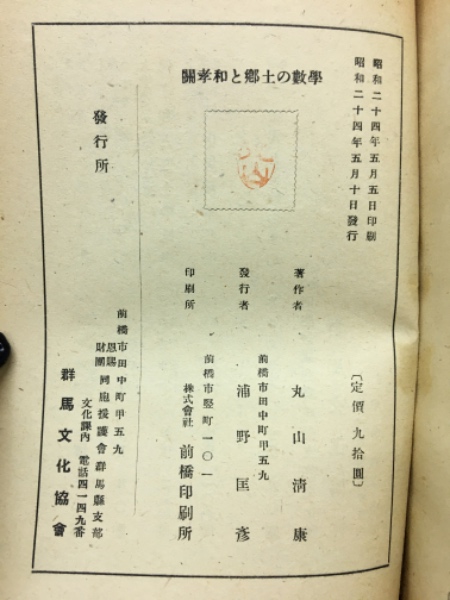 昭和二十四年五月五日印刷
昭和二十四年五月十日發行
〔定價九拾圓〕
關孝和と鄕土の數學
著作者 丸山淸康
前橋市田中町甲五九
發行者 浦野匡彥
前橋市竪町一〇一
印刷所 株式會社 前橋印刷所
發行所
前橋市田中町甲五九
恩賜財團 同胞援護會群馬縣支部
文化課內 電話四一四九番
群馬文化協會